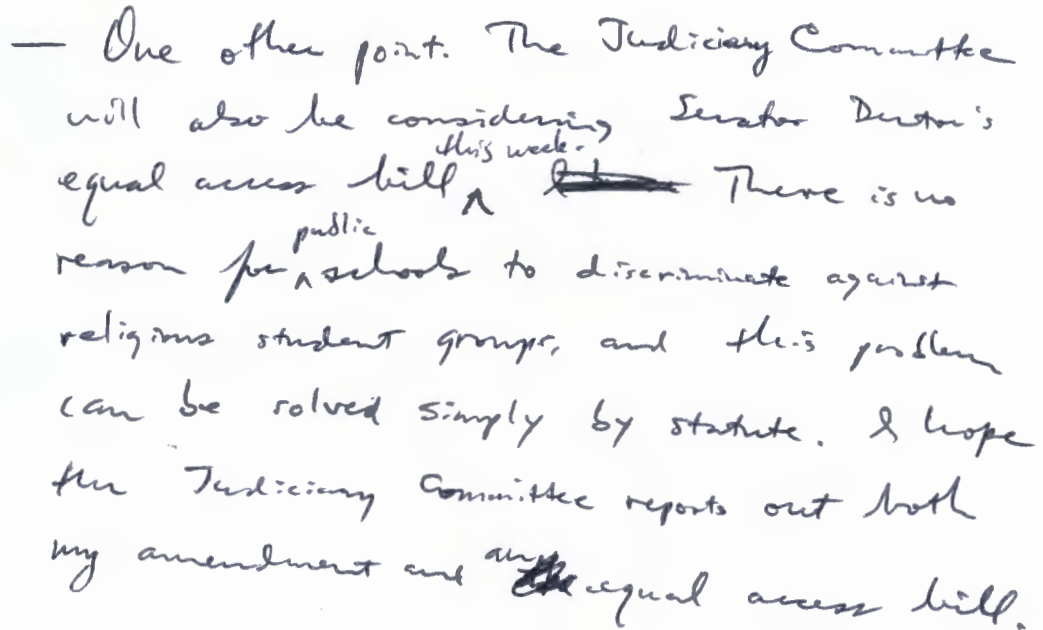 — One other point. The Judiciary Committee
will also be considering Senator Denton's
equal access bill ^ this week. There is no
reason for ^ public schools to discriminate against
religious student groups, and this problem
can be solved simply by statute. I hope
the Judiciary Committee reports out both
my amendment and an equal access bill.